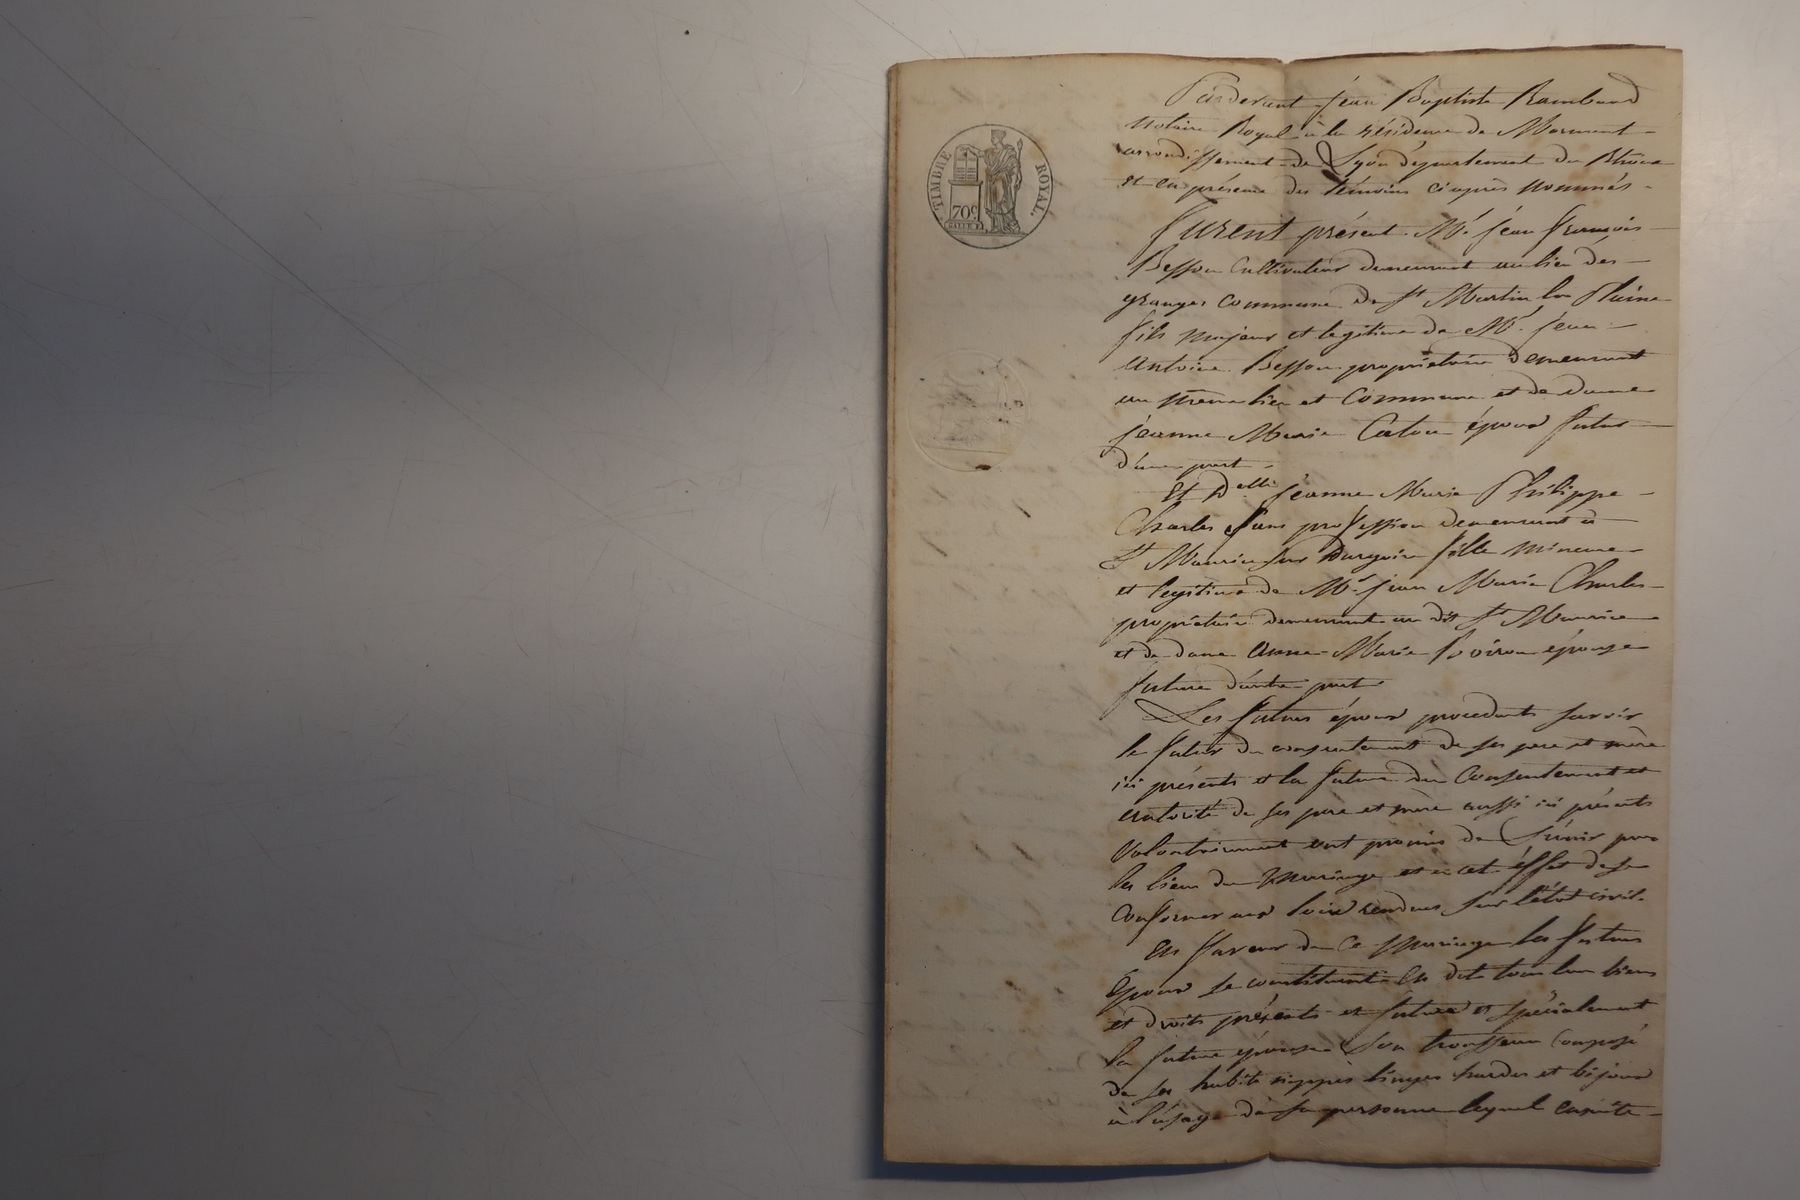 TIMBRE ROYAL.
70c
Pardevant jean Baptiste Rambaud
Notaire Royal à la résidence de Mornant
arrondissement de Lyon département du Rhône
et en présence des témoins ci après nommés
furent présent Mr. jean françois
Besson Cultivateur demeurant au lieu des
granges commune de St Martin la Plaine
fils majeur et legitime de Mr. jean
Antoine Besson propriétaire demeurant
au même lieu et Commune et de dame
jeanne Marie Caton époux futur
d'une part
Et Delle jeanne Marie Philippe
Charles sans profession demeurant à
St Maurice sur Dargoire fille mineure
et legitime de Mr. jean Marie Charles
propriétaire demeurant au dit St Maurice
et de dame Anne Marie Boiron épouse
future d'autre part
Les futurs époux procedants savoir
le futur du consentement de ses pere et mère
ici présents et la future du Consentement et
autorité de ses pere et mère aussi ici présents
Volontairement ont promis de S'unir par
les liens du Mariage et à cet éffet de se
Conformer aux loix rendues sur l'état civil.
En faveur de Ce Mariage les futurs
Époux se constituent En dot tous leurs biens
et droits présents et futurs et spécialement
la future épouse Son trousseau Composé
de ses habits nippes linges hardes et bijoux
à l'usage de sa personne lequel consiste